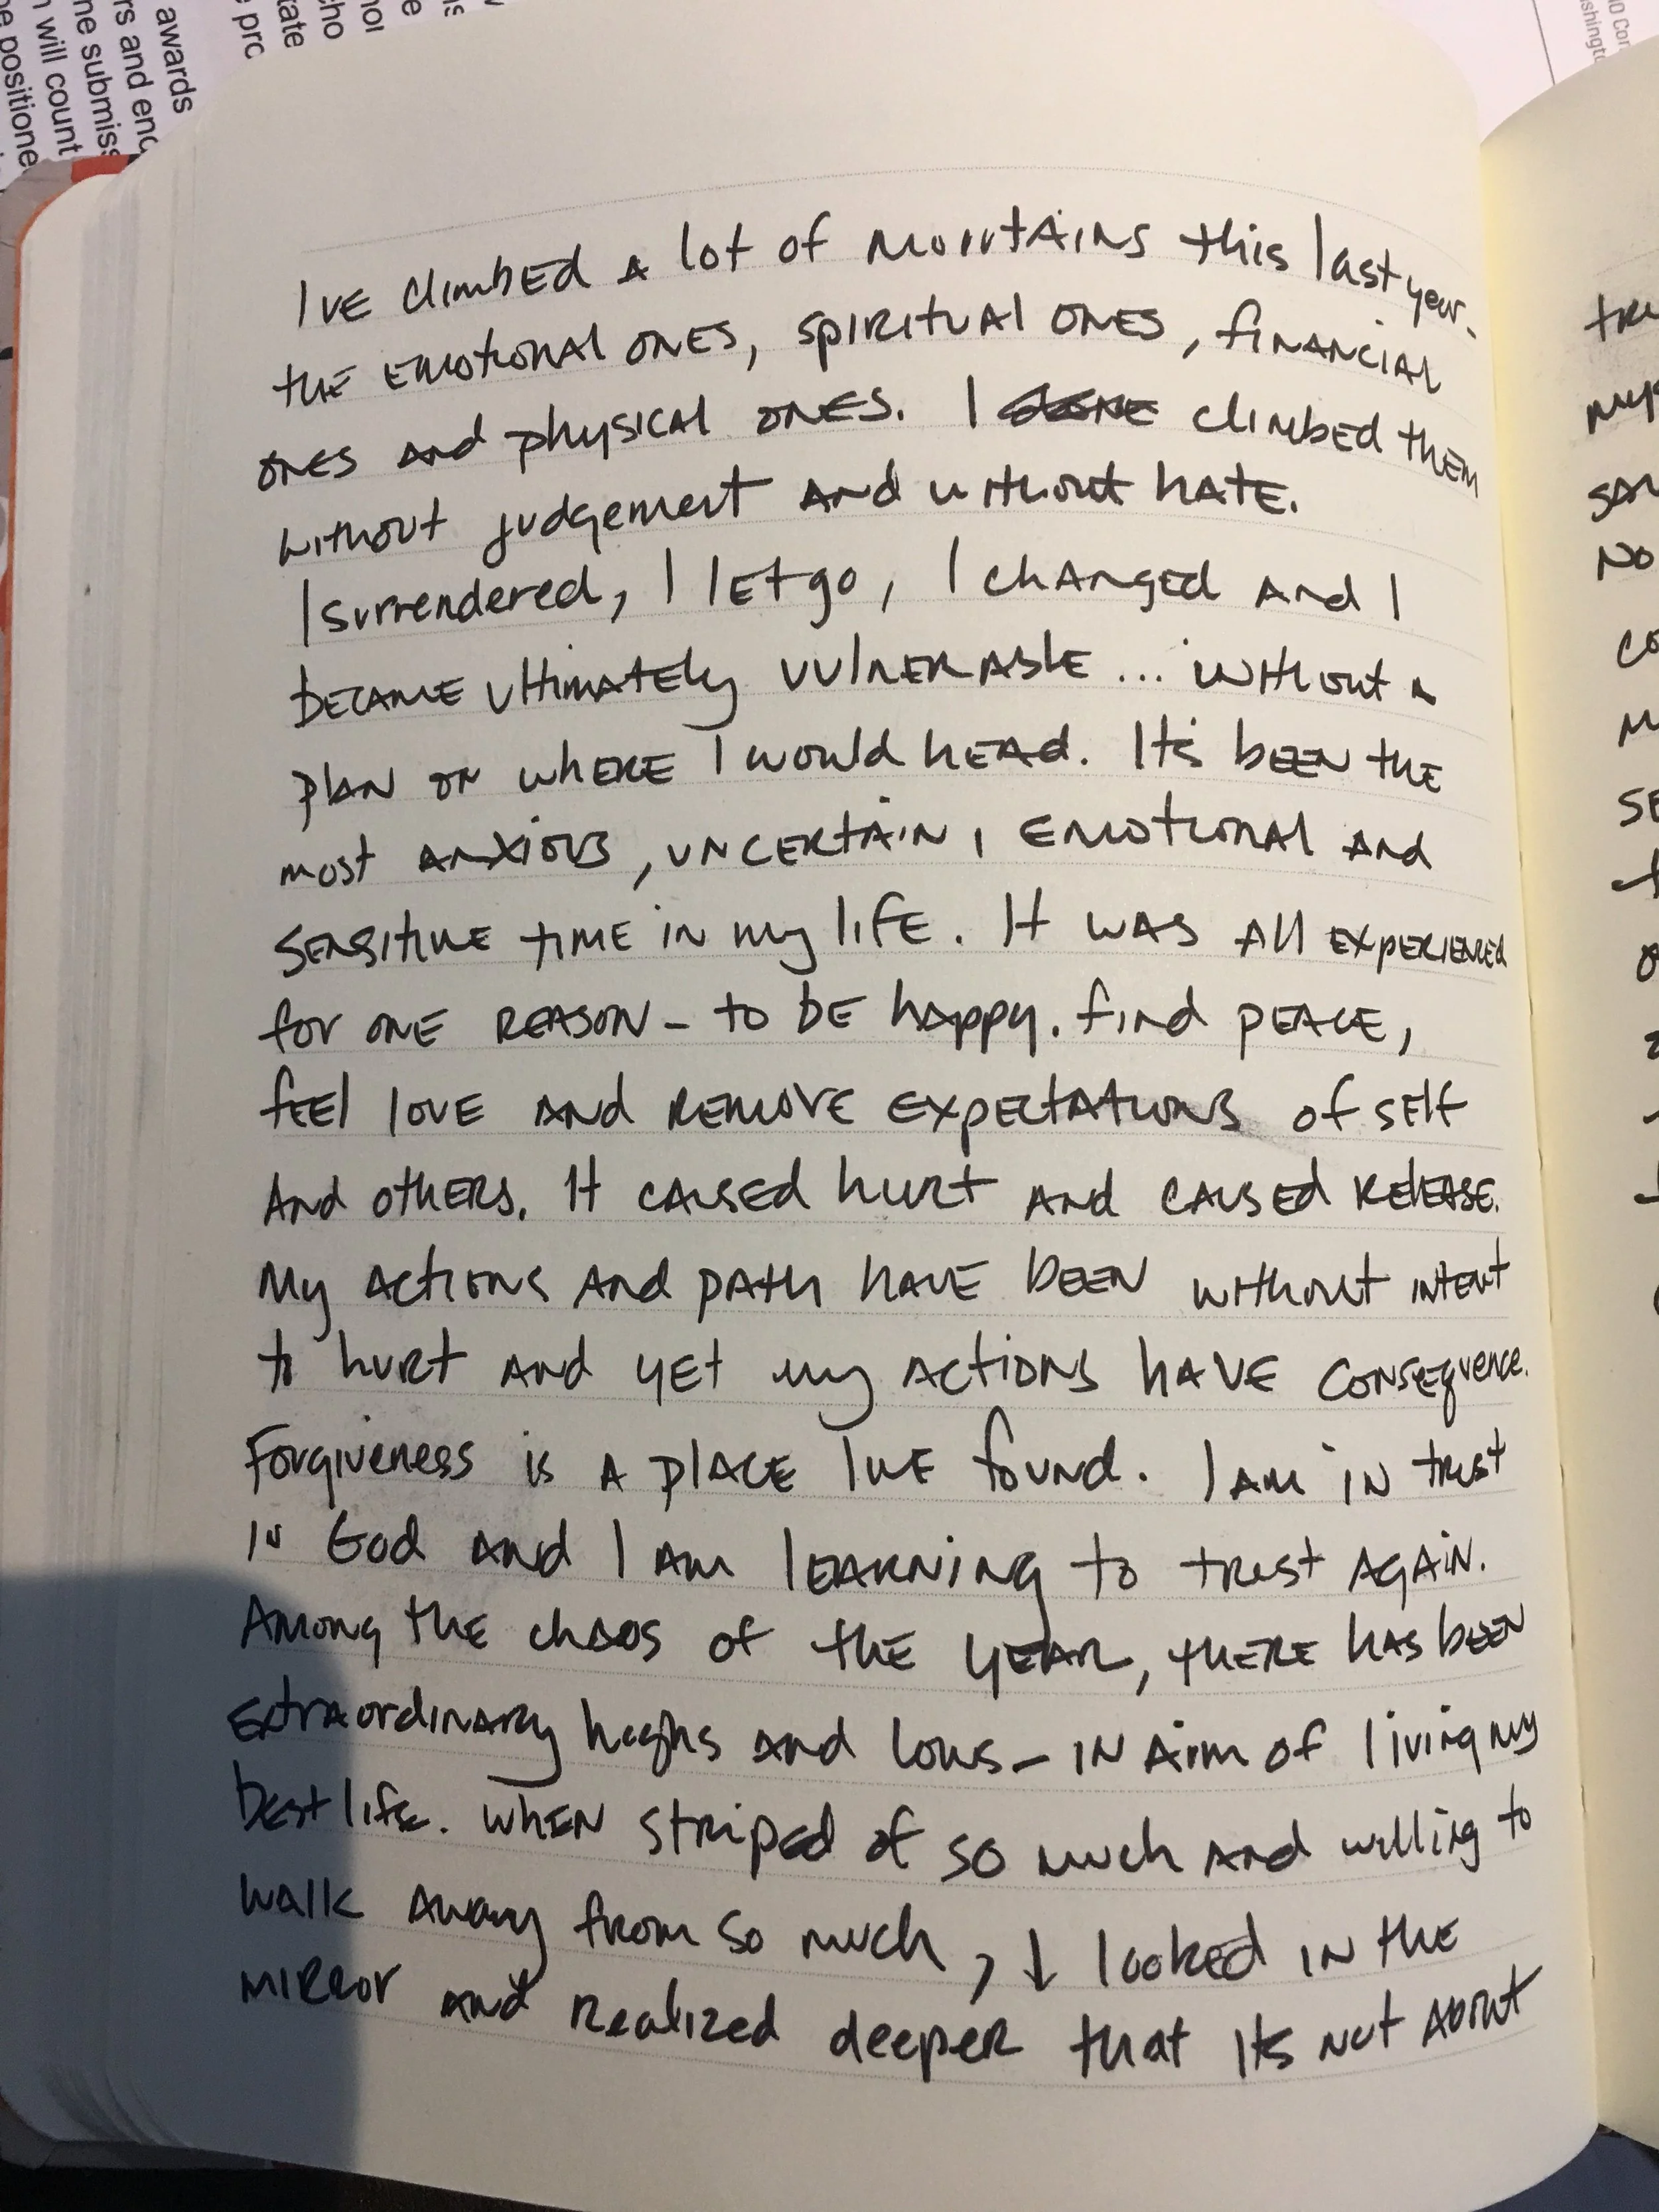 awards
rs and enc
ne submiss
n will count
e positione
tate
cho
e pro
I've climbed a lot of mountains this last year.
the emotional ones, spiritual ones, financial
ones and physical ones. I climbed them
without judgement and without hate.
I surrendered, I let go, I changed and I
became ultimately vulnerable... without a
plan on where I would head. It's been the
most anxious, uncertain, emotional and
sensitive time in my life. It was all experienced
for one reason - to be happy. find peace,
feel love and remove expectations of self
And others. It caused hurt and caused release.
My actions and path have been without intent
to hurt and yet my actions have consequence.
Forgiveness is a place I've found. I am in trust
in God and I am learning to trust again.
Among the chaos of the year, there has been
extraordinary highs and lows - in aim of living my
best life. When striped of so much and willing to
walk away from so much, I looked in the
mirror and realized deeper that its not about
tru
mys
No
co